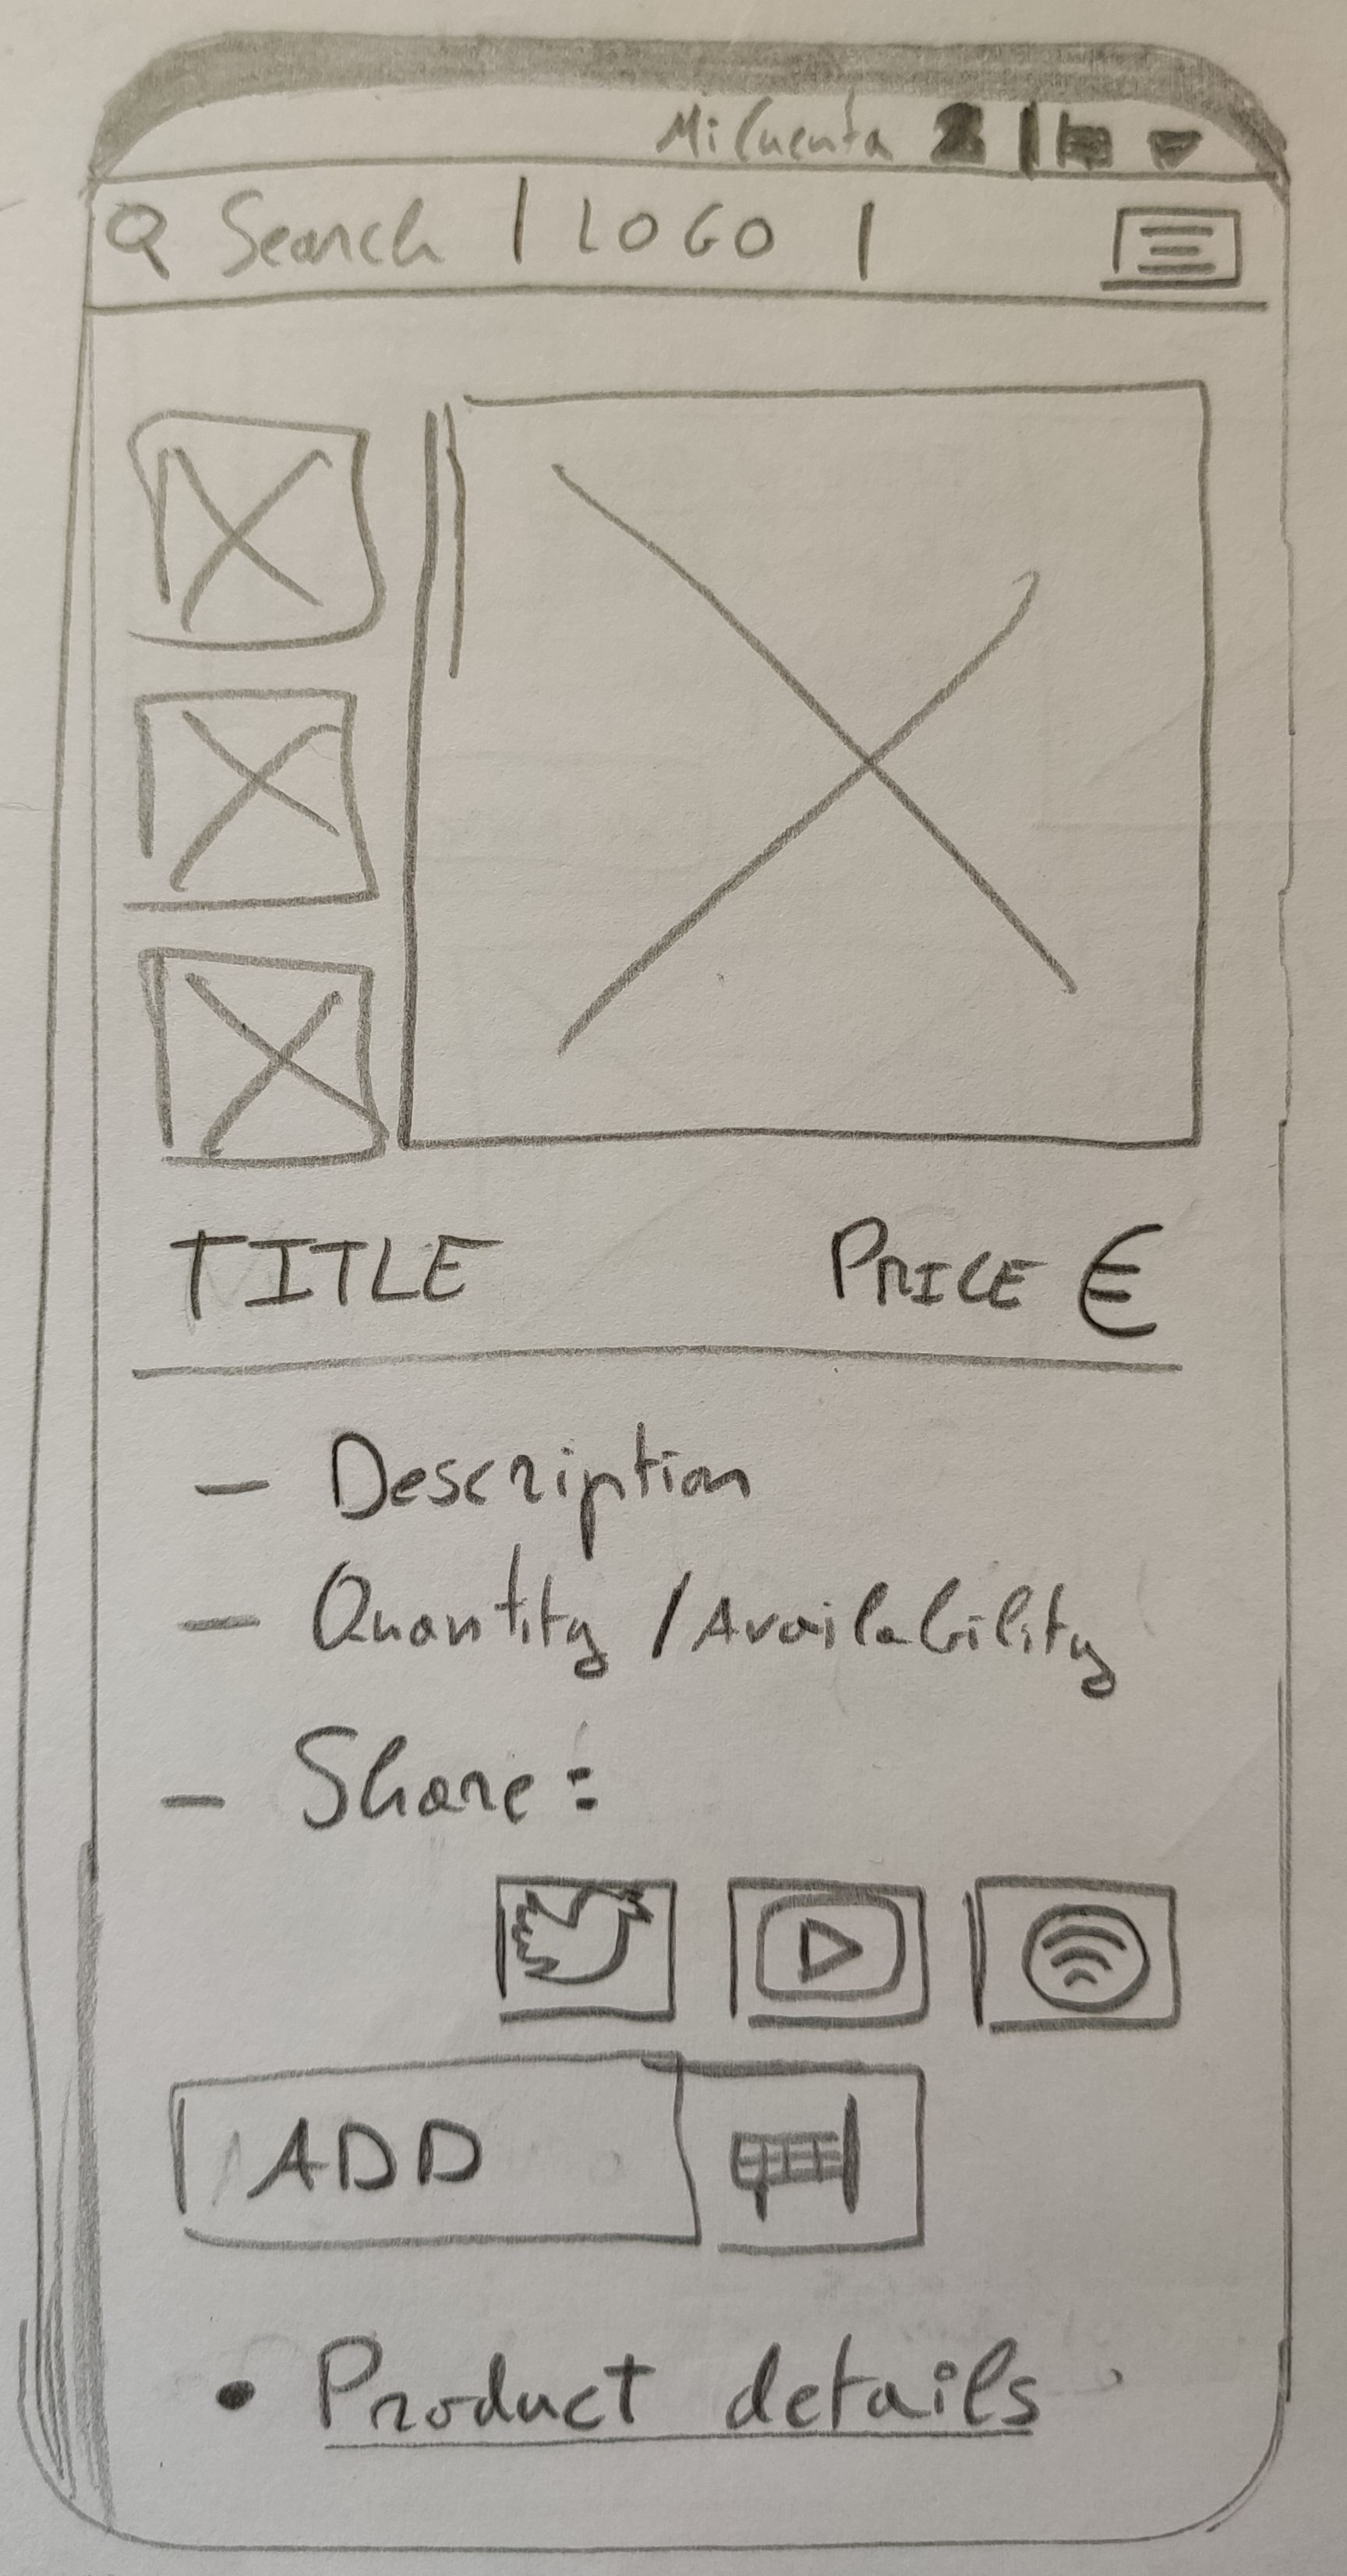 Mi Cuenta
Search | LOGO |
TITLE PRICE €
- Description
- Quantity / Availability
- Share:
ADD
• Product details